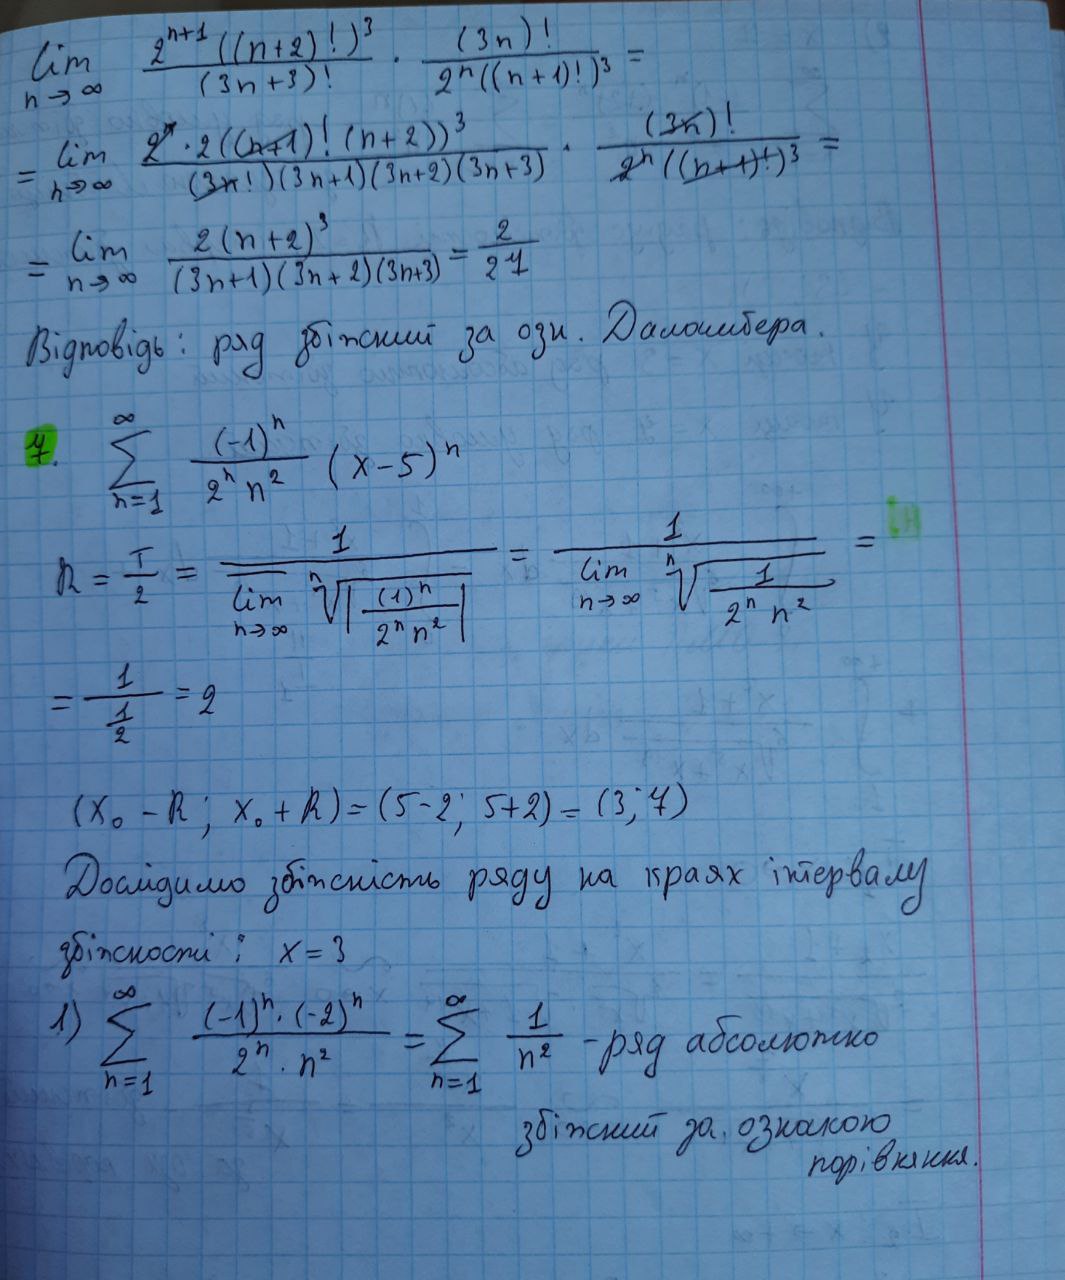 lim n→∞ 2^{n+1} ((n+2)!)^3 / (3n+3)! · (3n)! / 2^n ((n+1)!)^3 =
= lim n→∞ 2^n · 2 ((n+1)! (n+2))^3 / (3n!)(3n+1)(3n+2)(3n+3) · (3n)! / 2^n ((n+1)!)^3 =
= lim n→∞ 2(n+2)^3 / (3n+1)(3n+2)(3n+3) = 2/27
Відповідь: ряд збіжний за озн. Даламбера.
7. ∑_{n=1}^{∞} (-1)^n / 2^n n^2 (x-5)^n
R = T/2 = 1 / lim n→∞ ⁿ√|(1)^n / 2^n n^2| = 1 / lim n→∞ ⁿ√(1 / 2^n n^2) =
= 1 / (1/2) = 2
(x₀ - R; x₀ + R) = (5-2; 5+2) = (3; 7)
Дослідимо збіжність ряду на краях інтервалу
збіжності: x = 3
1) ∑_{n=1}^{∞} (-1)^n · (-2)^n / 2^n · n^2 = ∑_{n=1}^{∞} 1/n^2 - ряд абсолютно
збіжний за ознакою
порівняння.